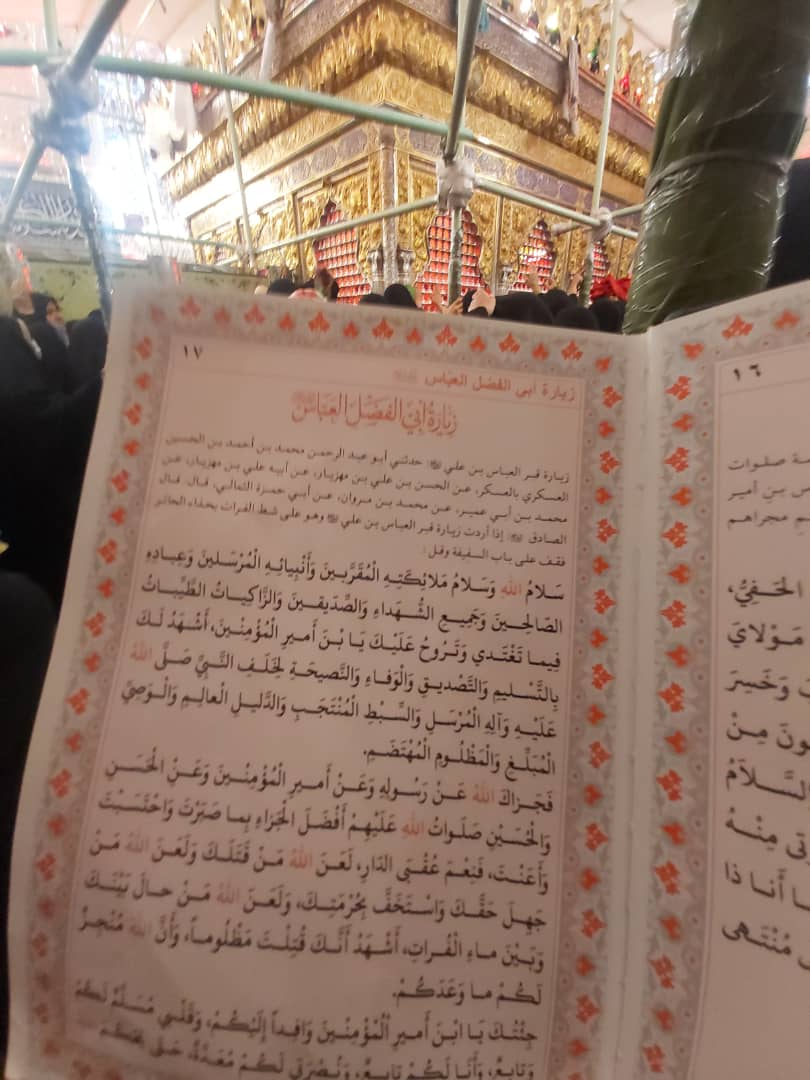 ١٦
الحَفِيُّ،
مَوْلايَ
وَخَسِرَ
مِنْ
السَّلامُ
مِنْهُ
أَنا ذا
مُنْتَهى
١٧
زيارة أبي الفضل العباس
زِيَارَةُ أَبِي الفَضْلِ العَبَّاسِ
زيارة قبر العباس بن علي: حدثني أبو عبد الرحمن محمد بن أحمد بن الحسين
العسكري بالعسكر، عن الحسن بن علي بن مهزيار، عن أبيه علي بن مهزيار، عن
محمد بن أبي عمير، عن محمد بن مروان، عن أبي حمزة الثمالي، قال: قال
الصادق: إذا أردت زيارة قبر العباس بن علي وهو على شط الفرات بحذاء الحائر
فقف على باب السقيفة وقل:
سَلامُ اللهِ وَسَلامُ مَلائِكَتِهِ الْمُقَرَّبينَ وَأَنْبِيائِهِ الْمُرْسَلينَ وَعِبادِهِ
الصّالِحينَ وَجَميعِ الشُّهَداءِ وَالصِّدّيقينَ وَالزّاكِياتُ الطَّيِّباتُ
فِيما تَغْتَدي وَتَرُوحُ عَلَيْكَ يَا بْنَ أَميرِ الْمُؤْمِنينَ، أَشْهَدُ لَكَ
بِالتَّسْليمِ وَالتَّصْديقِ وَالْوَفاءِ وَالنَّصيحَةِ لِخَلَفِ النَّبِيِّ صَلَّى اللهُ
عَلَيْهِ وَآلِهِ الْمُرْسَلِ وَالسِّبْطِ الْمُنْتَجَبِ وَالدَّليلِ الْعالِمِ وَالْوَصِيِّ
الْمُبَلِّغِ وَالْمَظْلُومِ الْمُهْتَضَمِ.
فَجَزاكَ اللهُ عَنْ رَسُولِهِ وَعَنْ أَميرِ الْمُؤْمِنينَ وَعَنِ الْحَسَنِ
وَالْحُسَيْنِ صَلَواتُ اللهِ عَلَيْهِمْ أَفْضَلَ الْجَزاءِ بِما صَبَرْتَ وَاحْتَسَبْتَ
وَأَعَنْتَ، فَنِعْمَ عُقْبَى الدّارِ، لَعَنَ اللهُ مَنْ قَتَلَكَ وَلَعَنَ اللهُ مَنْ
جَهِلَ حَقَّكَ وَاسْتَخَفَّ بِحُرْمَتِكَ، وَلَعَنَ اللهُ مَنْ حالَ بَيْنَكَ
وَبَيْنَ ماءِ الْفُراتِ، أَشْهَدُ أَنَّكَ قُتِلْتَ مَظْلُوماً، وَأَنَّ اللهَ مُنْجِزٌ
لَكُمْ ما وَعَدَكُمْ.
جِئْتُكَ يَا ابْنَ أَميرِ الْمُؤْمِنينَ وَافِداً إِلَيْكُمْ، وَقَلْبي مُسَلِّمٌ لَكُمْ
وَتابِعٌ، وَأَنَا لَكُمْ تابِعٌ، وَنُصْرَتي لَكُمْ مُعَدَّةٌ، حَتّى يَحْكُمَ